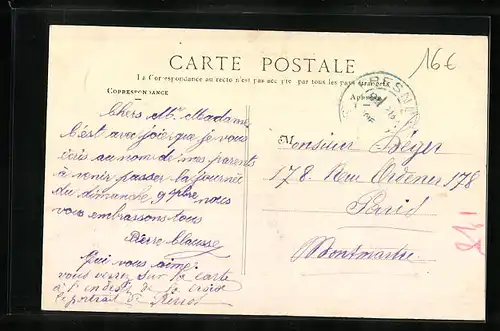 CARTE POSTALE
16€
La Correspondance au recto n'est pas acceptée par tous les pays étrangers
CORRESPONDANCE
Chers Mr Madame
C'est avec joie que je vous
écris au nom de mes parents
à venir passer la journée
du dimanche, 9bre nous
vous embrassons tous
Pierre Clausse
Qui vous aime.
vous verez sur la carte
à l'endroit de la croix
le portrait de
Monsieur Béger
178. Rue Ordener 178
Paris
Montmartre